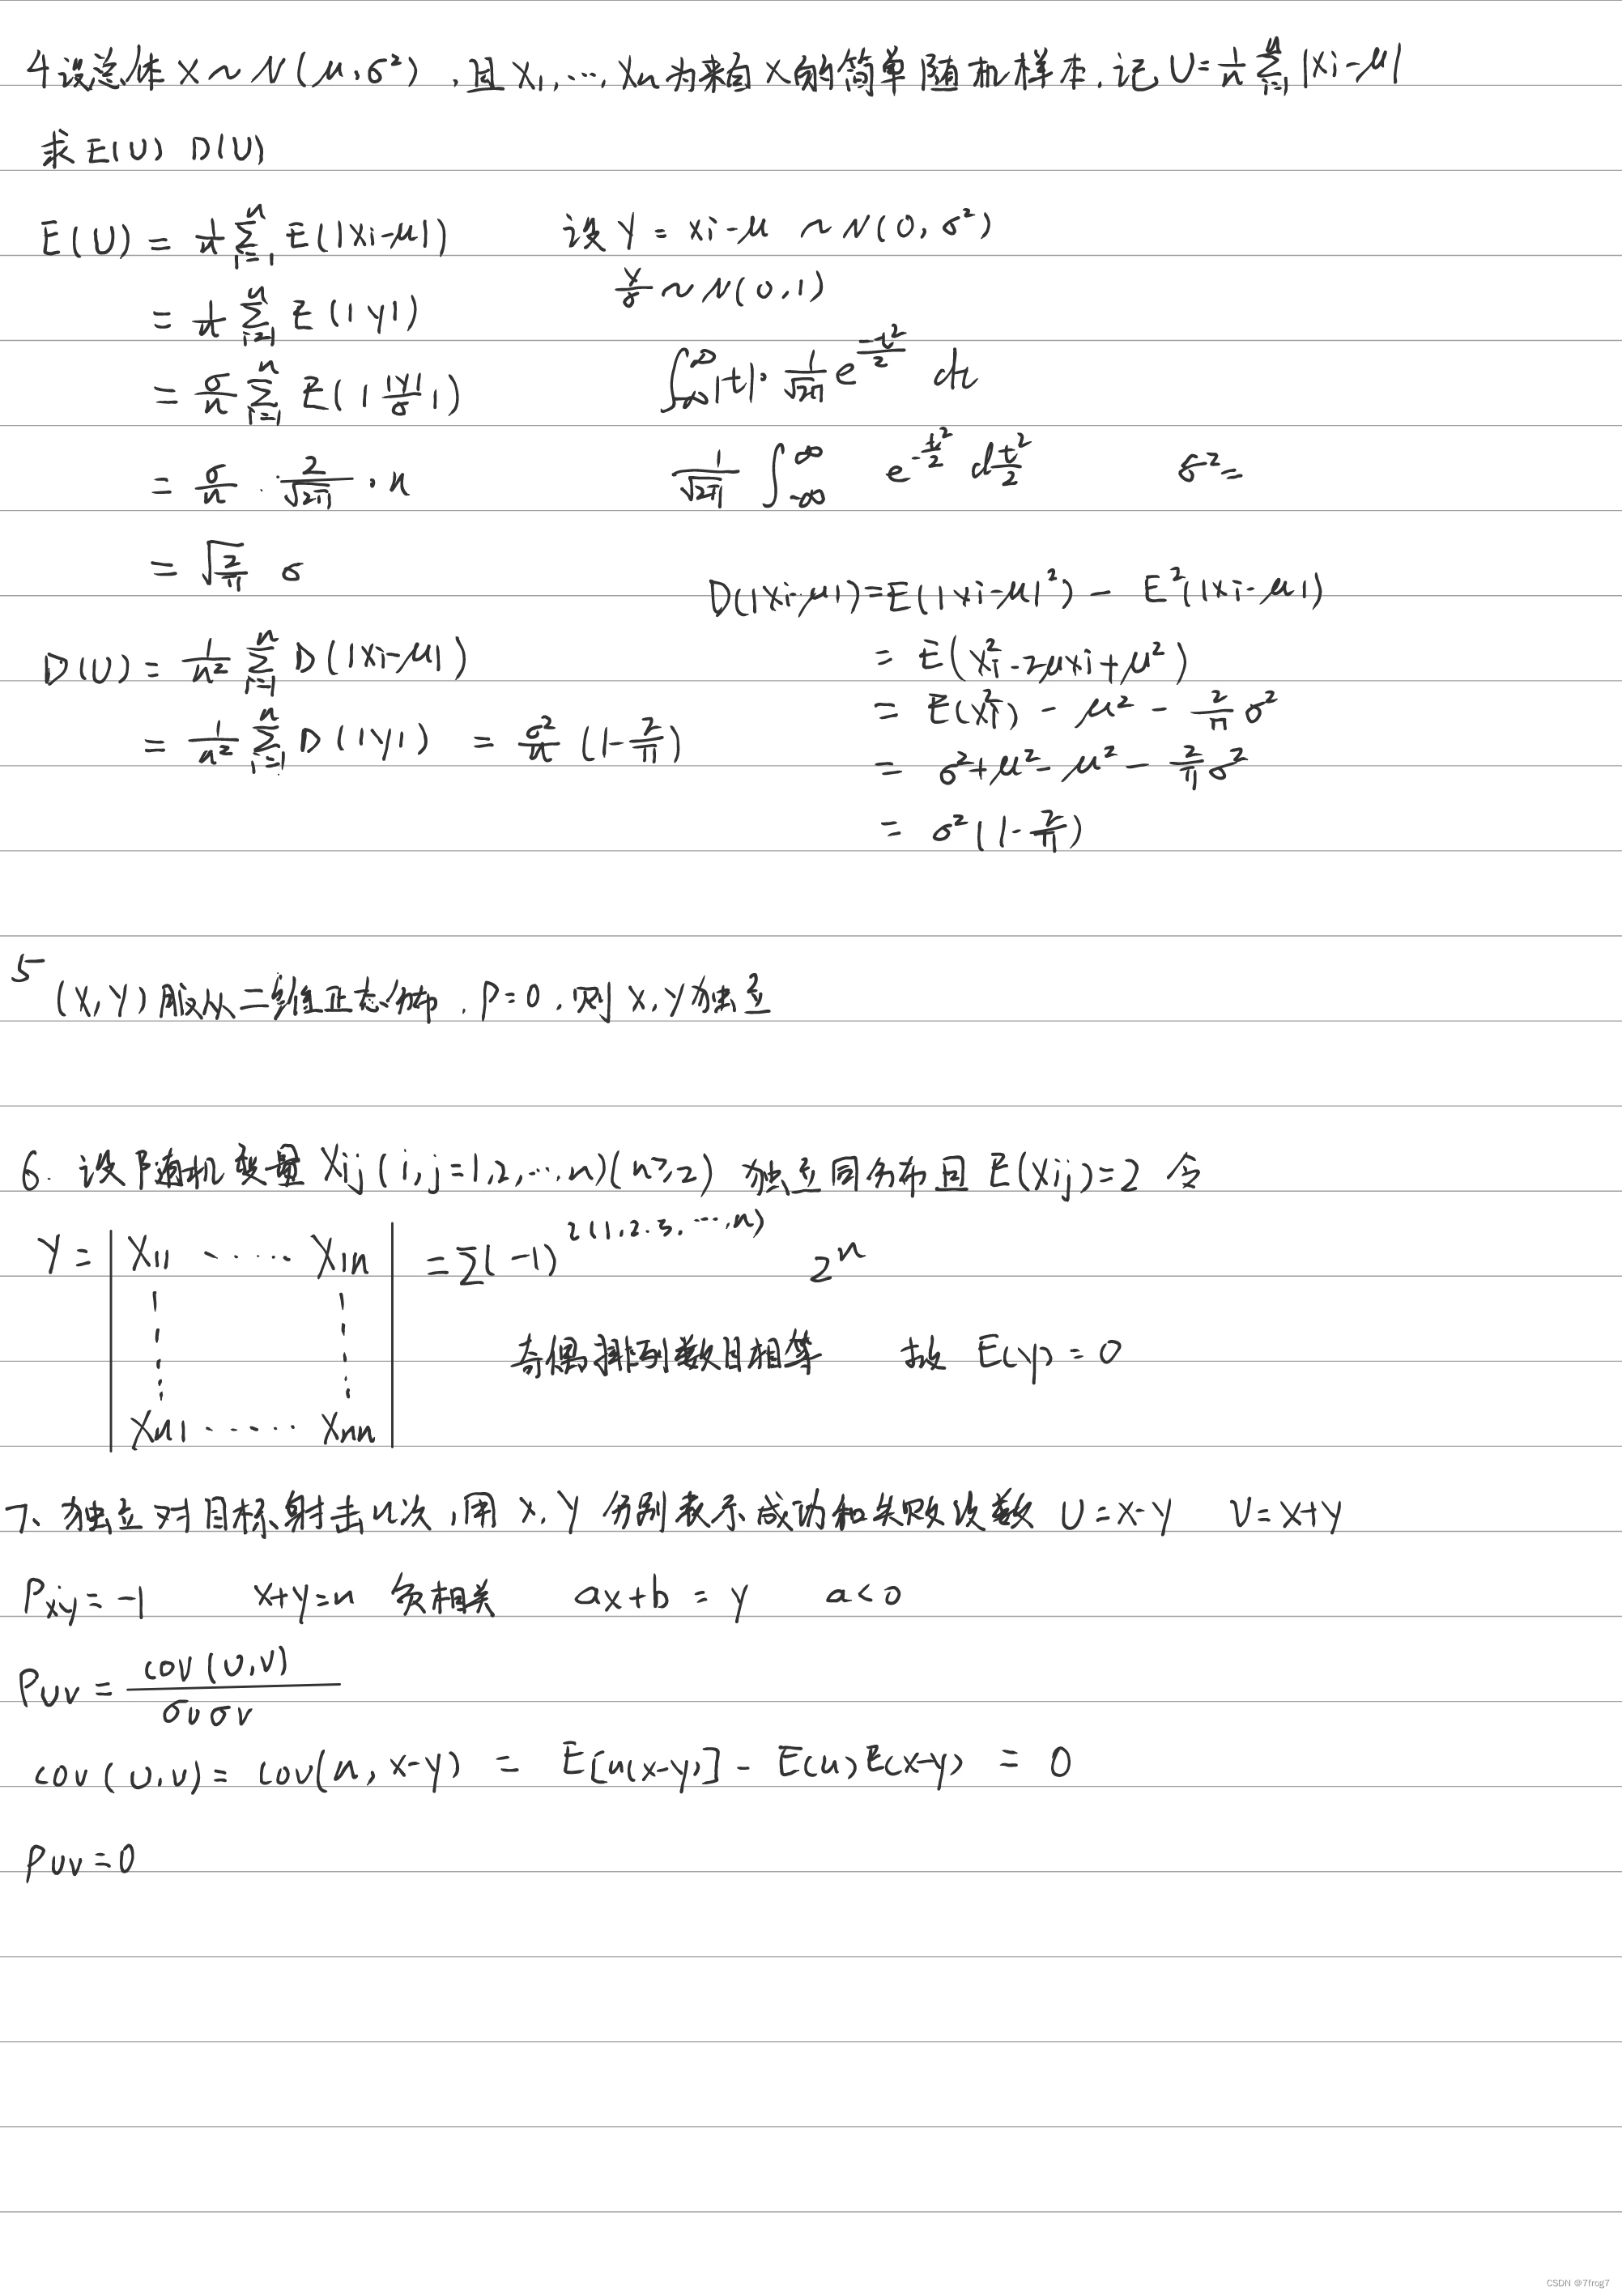 4 设总体 X ~ N(μ, σ²), 且 X₁, …, Xn 为来自 X 的简单随机样本. 记 U = 1/n ∑_{i=1}^{n} |Xi-μ|
求 E(U) D(U)
E(U) = 1/n ∑_{i=1}^{n} E(|Xi-μ|)
= 1/n ∑_{i=1}^{n} E(|Y|)
= σ/n ∑_{i=1}^{n} E(| |Y|/σ |)
= σ/n · 2/√(2π) · n
= √(2/π) σ
设 Y = Xi-μ ~ N(0, σ²)
Y/σ ~ N(0,1)
∫_{-∞}^{∞} |t| · 1/√(2π) e^{-t²/2} dt
1/√(2π) ∫_{-∞}^{∞} e^{-t²/2} d t²/2
σ² =
D(U) = 1/n² ∑_{i=1}^{n} D(|Xi-μ|)
= 1/n² ∑_{i=1}^{n} D(|Y|) = σ²/n (1-2/π)
D(|Xi-μ|) = E(|Xi-μ|²) - E²(|Xi-μ|)
= E(Xi²-2μXi+μ²)
= E(Xi²) - μ² - 2/π σ²
= σ²+μ²-μ² - 2/π σ²
= σ²(1-2/π)
5
(X,Y) 服从二维正态分布, ρ=0, 则 X, Y 独立
6. 设随机变量 Xij (i,j=1,2,…,n)(n≥2) 独立同分布且 E(Xij)=2 令
Y = | X11 ····· X1n | = ∑(-1)^{τ(1,2,3,…,n)} 2ⁿ
奇偶排列数目相等 故 E(Y)=0
Xn1 ····· Xnn
7、独立对目标射击n次, 用 X, Y 分别表示成功和失败次数 U=X-Y V=X+Y
ρxy = -1 X+Y=n 负相关 aX+b = Y a<0
ρUV = cov(U,V) / σU σV
cov(U,V) = cov(n, X-Y) = E[n(X-Y)] - E(n)E(X-Y) = 0
ρUV = 0
CSDN @7frog7